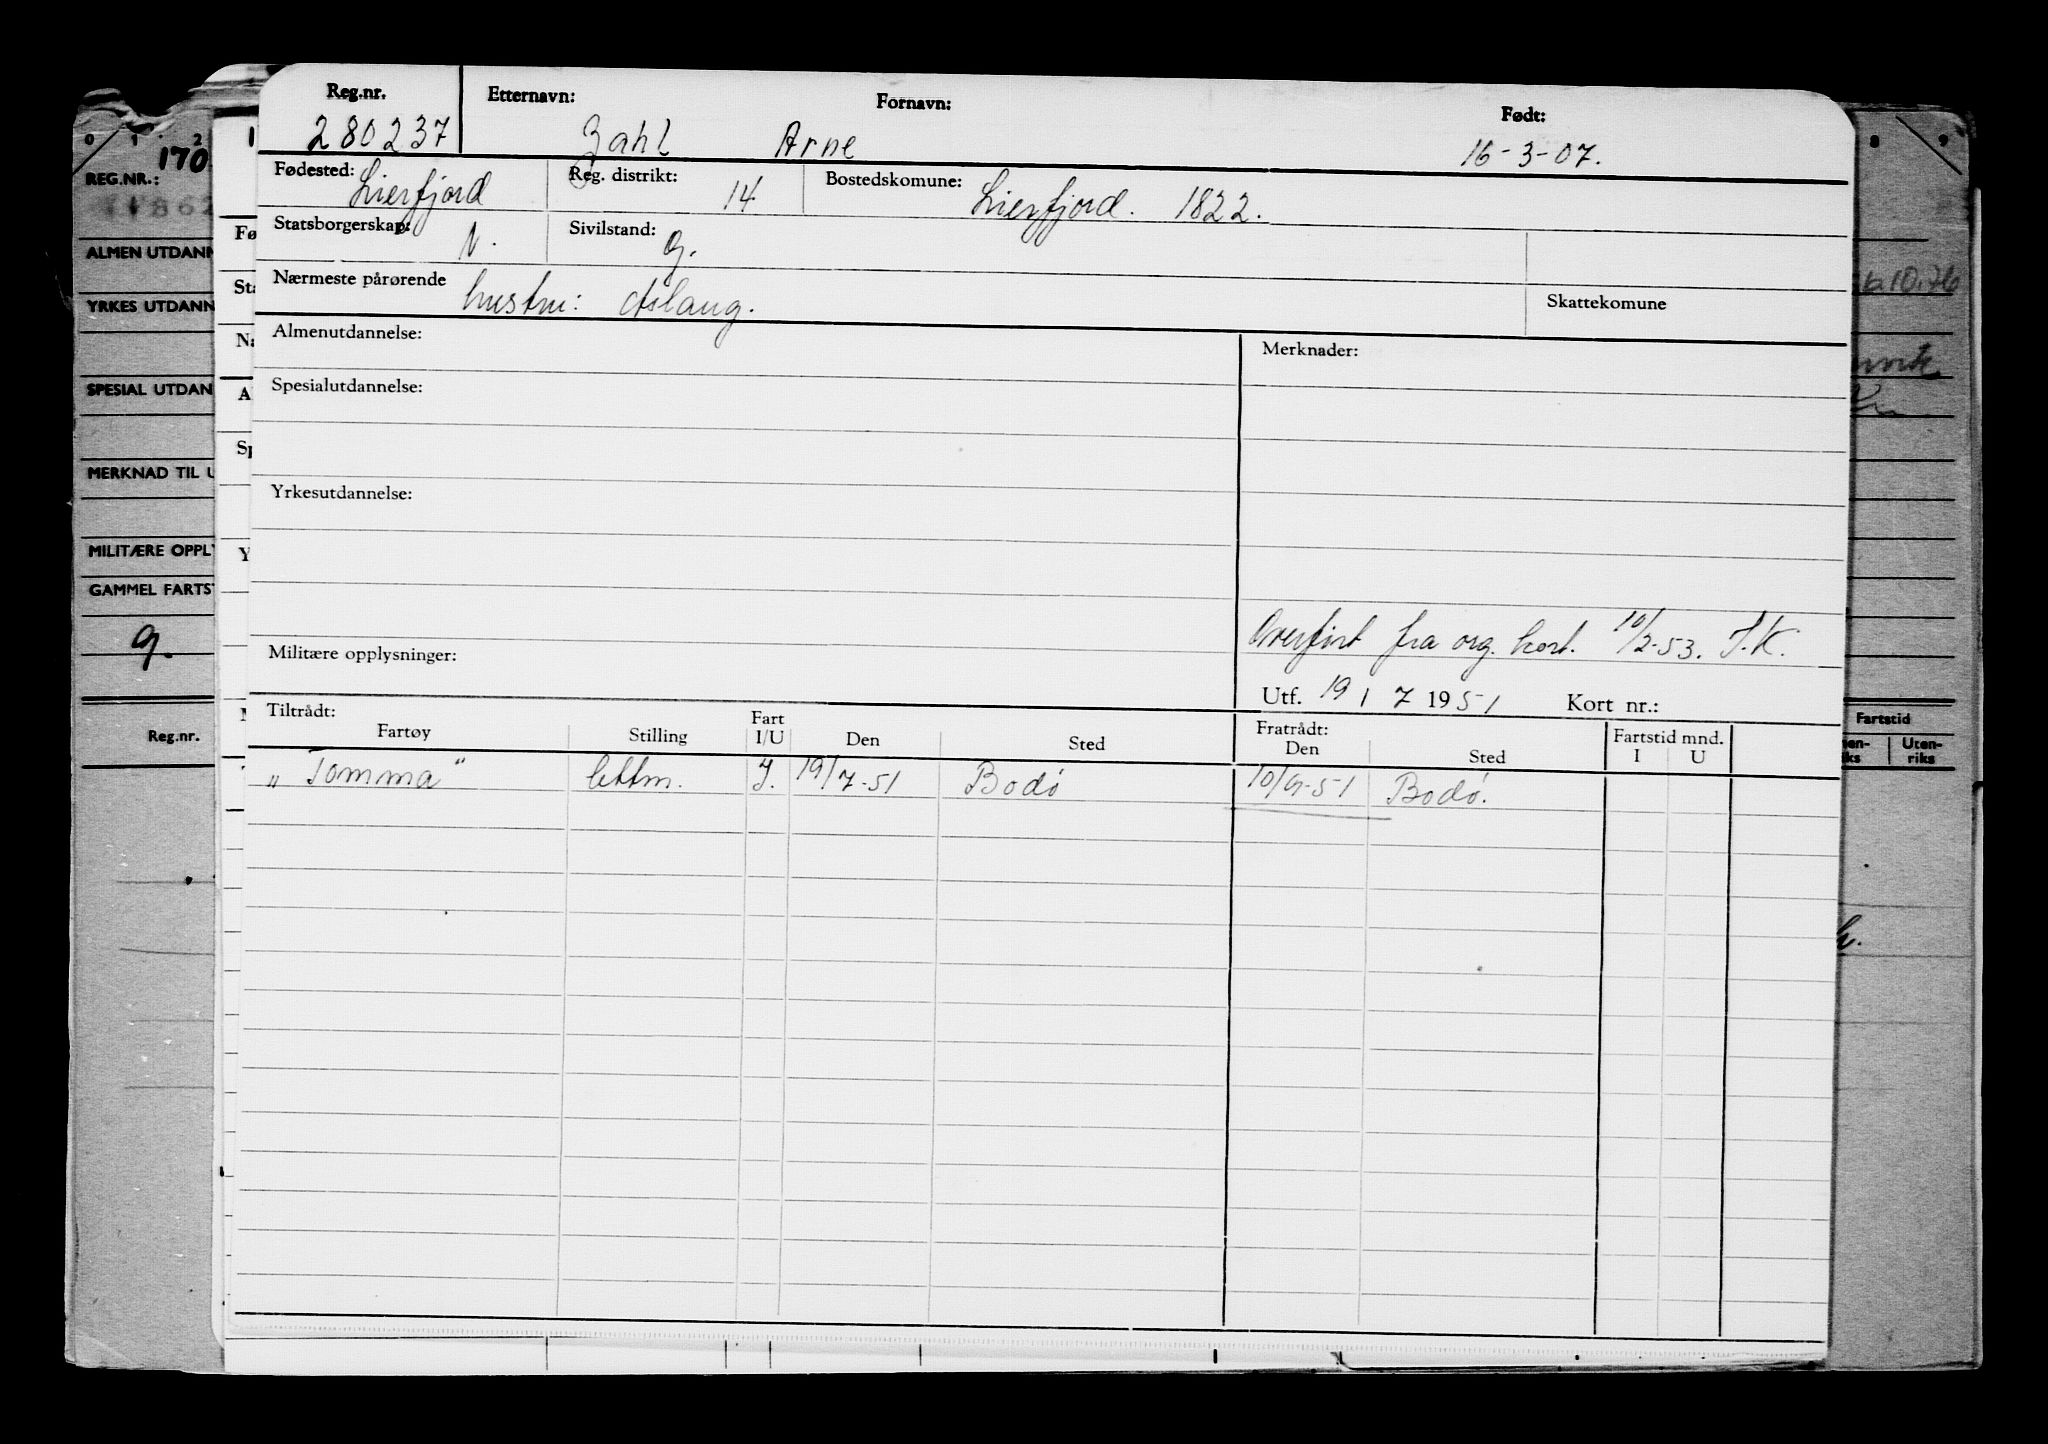 Reg.nr. Etternavn: Fornavn: Født:
280237 Zahl Arne 16-3-07.
Fødested: Leirfjord Reg. distrikt: 14 Bostedskomune: Leirfjord. 1822.
Statsborgerskap: N. Sivilstand: g.
Nærmeste pårørende hustru: Aslaug. Skattekomune
Almenutdannelse: Merknader:
Spesialutdannelse:
Yrkesutdannelse:
Overført fra org. kort. 10/2-53. J.K.
Militære opplysninger:
Utf. 19 / 7 1951 Kort nr.:
Tiltrådt: Fratrådt:
Fartøy Stilling Fart I/U Den Sted Den Sted Fartstid mnd. I U
"Tomma" lettm. J. 19/7-51 Bodø 10/9-51 Bodø.
0 1 2
170
REG.NR.:
ALMEN UTDANN
YRKES UTDANN
SPESIAL UTDAN
MERKNAD TIL U
MILITÆRE OPPLY
GAMMEL FARTST
g.
Reg.nr.
Fø
Sta
Na
Al
Sp
Y
8 9
10.76
Fartstid
Uten-
riks